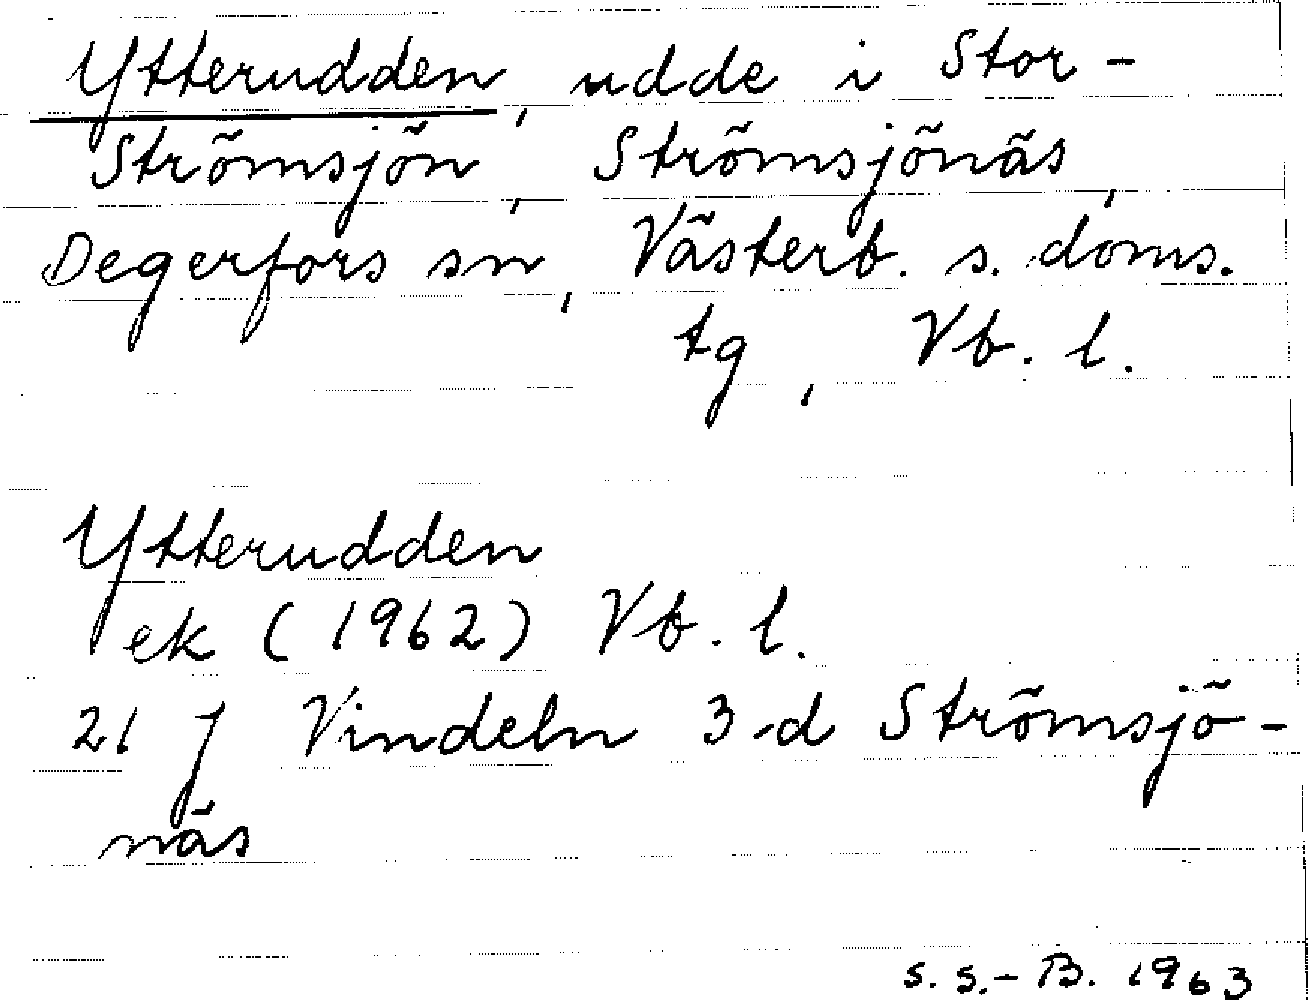 Ytterudden, udde i Stor-
Strömsjön, Strömsjönäs,
Degerfors sn, Västerb. s. doms.
tg, Vb. l.
Ytterudden
ek (1962) Vb. l.
21 J Vindeln 3 d Strömsjö-
näs
s. s.-B. 1963